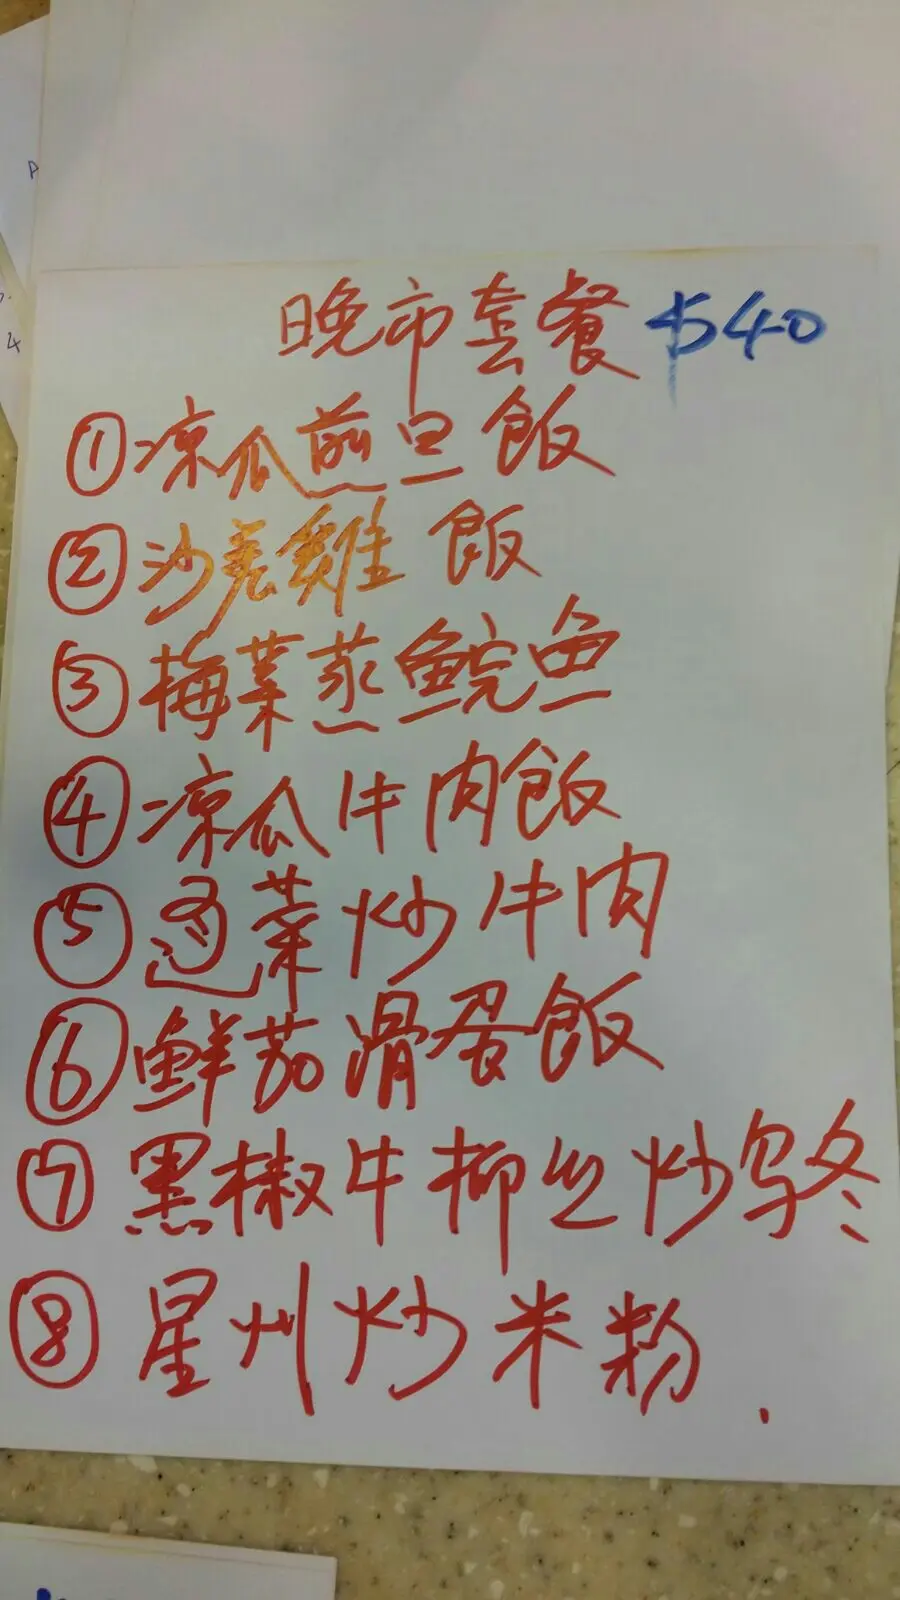 晚市套餐 $40
① 凉瓜煎旦飯
② 沙姜雞飯
③ 梅菜蒸鯇鱼
④ 凉瓜牛肉飯
⑤ 菜炒牛肉
⑥ 鮮茄滑蛋飯
⑦ 黑椒牛柳丝炒乌冬
⑧ 星州炒米粉.
4